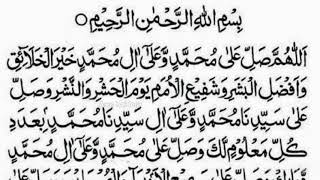 بِسْمِ اللّٰهِ الرَّحْمٰنِ الرَّحِيْمِ
اَللّٰهُمَّ صَلِّ عَلٰى مُحَمَّدٍ وَّعَلٰٓى اٰلِ مُحَمَّدٍ خَيْرِ الْخَلَآئِقِ
وَاَفْضَلِ الْبَشَرِ وَشَفِيْعِ الْاُمَمِ يَوْمَ الْحَشْرِ وَالنَّشْرِ وَصَلِّ
عَلٰى سَيِّدِنَا مُحَمَّدٍ وَّعَلٰٓى اٰلِ سَيِّدِنَا مُحَمَّدٍ بِعَدَدِ
كُلِّ مَعْلُوْمٍ لَّكَ وَصَلِّ عَلٰى مُحَمَّدٍ وَّعَلٰٓى اٰلِ مُحَمَّدٍ